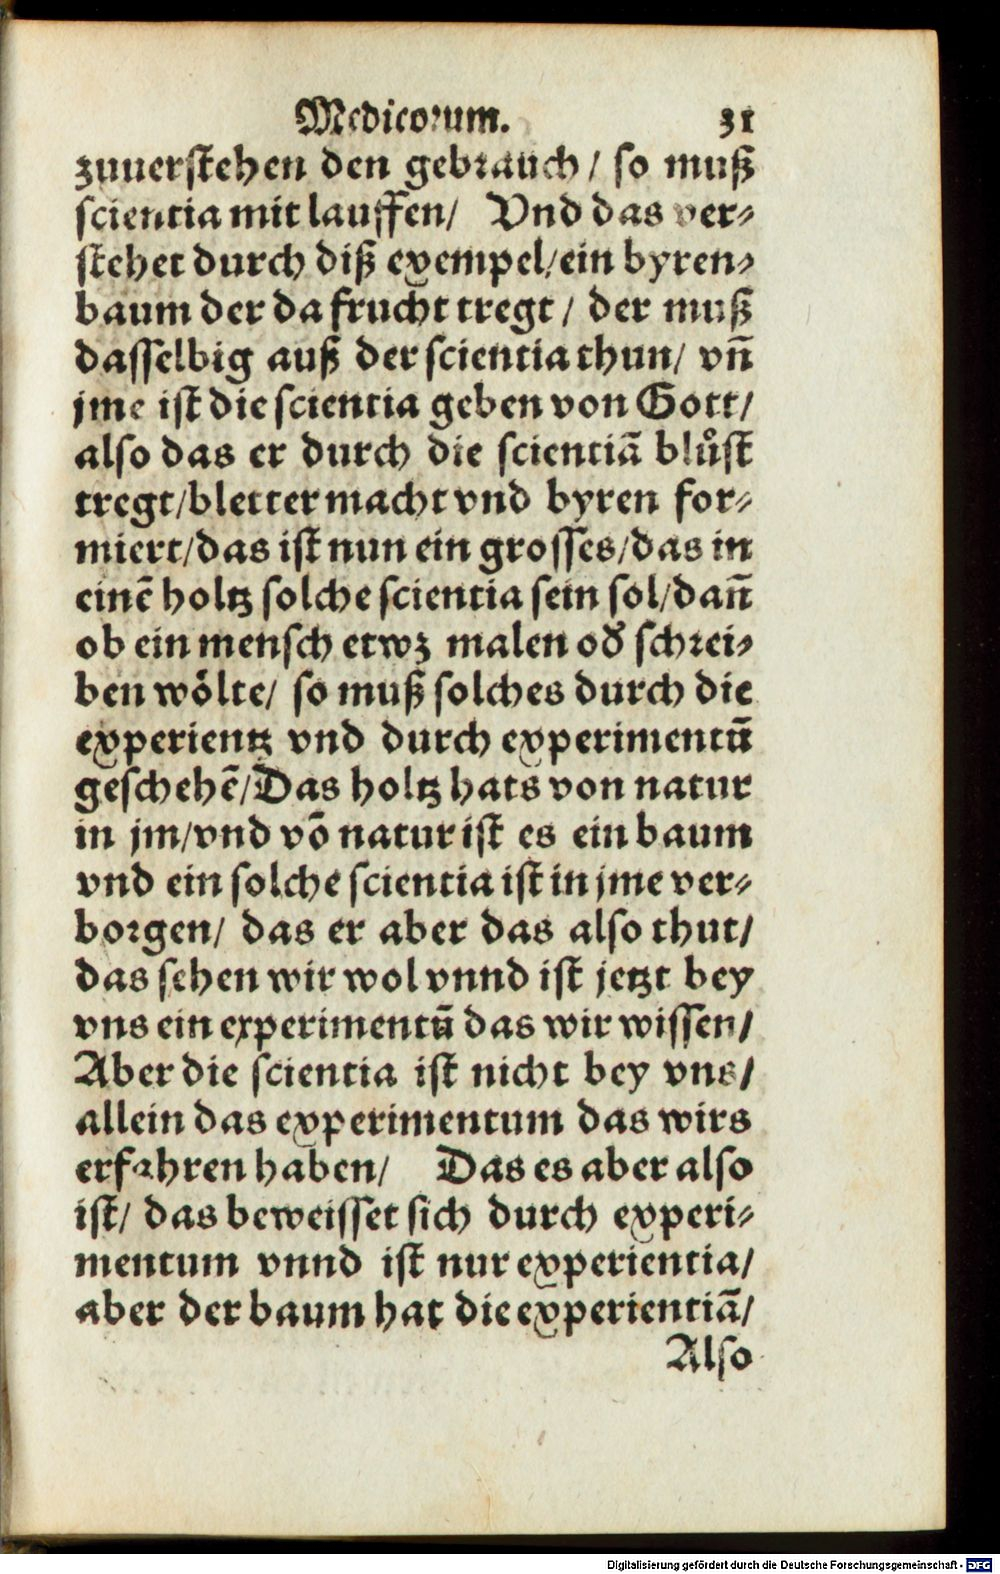 Medicorum. 31
zuuerstehen den gebrauch / so muß
scientia mit lauffen / Vnd das ver⸗
stehet durch diß exempel / ein byren⸗
baum der da frucht tregt / der muß
dasselbig auß der scientia thun / vñ
jme ist die scientia geben von Gott /
also das er durch die scientiã blůst
tregt / bletter macht vnd byren for⸗
miert / das ist nun ein grosses / das in
einẽ holtz solche scientia sein sol / dañ
ob ein mensch etwz malen oď schrei⸗
ben wölte / so muß solches durch die
experientz vnd durch experimentũ
geschehẽ / Das holtz hats von natur
in jm / vnd võ natur ist es ein baum
vnd ein solche scientia ist in jme ver⸗
borgen / das er aber das also thut /
das sehen wir wol vnnd ist jetzt bey
vns ein experimentũ das wir wissen /
Aber die scientia ist nicht bey vns /
allein das experimentum das wirs
erfahren haben / Das es aber also
ist / das beweisset sich durch experi⸗
mentum vnnd ist nur experientia /
aber der baum hat die experientiã /
Also
Digitalisierung gefördert durch die Deutsche Forschungsgemeinschaft - DFG